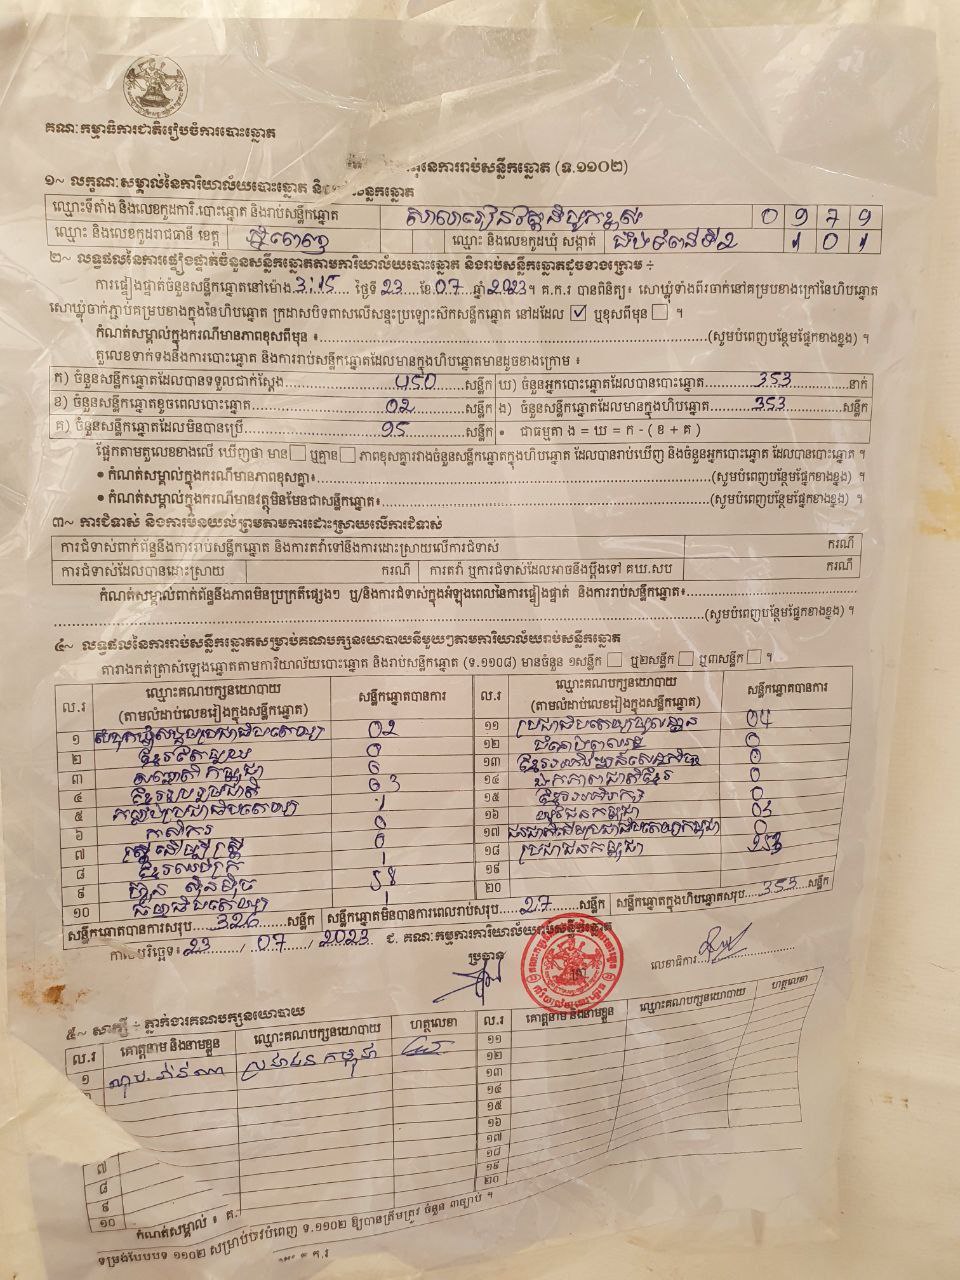 គណៈកម្មាធិការជាតិរៀបចំការបោះឆ្នោត
នៃការរាប់សន្លឹកឆ្នោត (ទ.១១០២)
១~ លក្ខណៈសម្គាល់នៃការិយាល័យបោះឆ្នោត និង សន្លឹកឆ្នោត
ឈ្មោះទីតាំង និងលេខកូដការិ.បោះឆ្នោត និងរាប់សន្លឹកឆ្នោត សាលារៀនវត្តនិរោធរង្សី 0 9 7 9
ឈ្មោះ និងលេខកូដរាជធានី ខេត្ត ភ្នំពេញ ឈ្មោះ និងលេខកូដឃុំ សង្កាត់ ច្បារអំពៅទី2 1 0 1
២~ លទ្ធផលនៃការផ្ទៀងផ្ទាត់ចំនួនសន្លឹកឆ្នោតតាមការិយាល័យបោះឆ្នោត និងរាប់សន្លឹកឆ្នោតដូចខាងក្រោម ÷
ការផ្ទៀងផ្ទាត់ចំនួនសន្លឹកឆ្នោតនៅម៉ោង 3:15 ថ្ងៃទី 23 ខែ 07 ឆ្នាំ 2023។ គ.ក.រ បានពិនិត្យ៖ សោឃ្លុំទាំងពីរចាក់នៅគម្របខាងក្រៅនៃហិបឆ្នោត
សោឃ្លុំចាក់ភ្ជាប់គម្របខាងក្នុងនៃហិបឆ្នោត ក្រដាសបិទពាសលើសន្ទះប្រឡោះសិកសន្លឹកឆ្នោត នៅដដែល ☑ ឬខុសពីមុន ☐ ។
កំណត់សម្គាល់ក្នុងករណីមានភាពខុសពីមុន ៖ (សូមបំពេញបន្ថែមផ្នែកខាងខ្នង) ។
តួលេខទាក់ទងនឹងការបោះឆ្នោត និងការរាប់សន្លឹកឆ្នោតដែលមានក្នុងហិបឆ្នោតមានដូចខាងក្រោម ៖
ក) ចំនួនសន្លឹកឆ្នោតដែលបានទទួលជាក់ស្តែង 450 សន្លឹក ឃ) ចំនួនអ្នកបោះឆ្នោតដែលបានបោះឆ្នោត 353 នាក់
ខ) ចំនួនសន្លឹកឆ្នោតខូចពេលបោះឆ្នោត 02 សន្លឹក ង) ចំនួនសន្លឹកឆ្នោតដែលមានក្នុងហិបឆ្នោត 353 សន្លឹក
គ) ចំនួនសន្លឹកឆ្នោតដែលមិនបានប្រើ 95 សន្លឹក • ជាធម្មតា ង = ឃ = ក - ( ខ + គ )
ផ្អែកតាមតួលេខខាងលើ ឃើញថា មាន ☐ ឬគ្មាន ☐ ភាពខុសគ្នារវាងចំនួនសន្លឹកឆ្នោតក្នុងហិបឆ្នោត ដែលបានរាប់ឃើញ និងចំនួនអ្នកបោះឆ្នោត ដែលបានបោះឆ្នោត ។
• កំណត់សម្គាល់ក្នុងករណីមានភាពខុសគ្នា៖ (សូមបំពេញបន្ថែមផ្នែកខាងខ្នង) ។
• កំណត់សម្គាល់ក្នុងករណីមានវត្ថុមិនមែនជាសន្លឹកឆ្នោត៖ (សូមបំពេញបន្ថែមផ្នែកខាងខ្នង) ។
៣~ ការជំទាស់ និងការមិនយល់ព្រមតាមការដោះស្រាយលើការជំទាស់
ការជំទាស់ពាក់ព័ន្ធនឹងការរាប់សន្លឹកឆ្នោត និងការតវ៉ាទៅនឹងការដោះស្រាយលើការជំទាស់ ករណី
ការជំទាស់ដែលបានដោះស្រាយ ករណី ការតវ៉ា ឬការជំទាស់ដែលអាចនឹងប្តឹងទៅ គឃ.សប ករណី
កំណត់សម្គាល់ពាក់ព័ន្ធនឹងភាពមិនប្រក្រតីផ្សេងៗ ឬ/និងការជំទាស់ក្នុងអំឡុងពេលនៃការផ្ទៀងផ្ទាត់ និងការរាប់សន្លឹកឆ្នោត៖
(សូមបំពេញបន្ថែមផ្នែកខាងខ្នង) ។
៤~ លទ្ធផលនៃការរាប់សន្លឹកឆ្នោតសម្រាប់គណបក្សនយោបាយនីមួយៗតាមការិយាល័យរាប់សន្លឹកឆ្នោត
តារាងកត់ត្រាសំឡេងឆ្នោតតាមការិយាល័យបោះឆ្នោត និងរាប់សន្លឹកឆ្នោត (ទ.១១០៨) មានចំនួន ១សន្លឹក ☐ ឬ២សន្លឹក ☐ ឬ៣សន្លឹក ☐ ។
ល.រ ឈ្មោះគណបក្សនយោបាយ (តាមលំដាប់លេខរៀងក្នុងសន្លឹកឆ្នោត) សន្លឹកឆ្នោតបានការ ល.រ ឈ្មោះគណបក្សនយោបាយ (តាមលំដាប់លេខរៀងក្នុងសន្លឹកឆ្នោត) សន្លឹកឆ្នោតបានការ
១ សំបុកឃ្មុំសង្គមប្រជាធិបតេយ្យ 02 ១១ 04
២ ខ្មែររួបរួម 0 ១២ 0
៣ កម្ពុជា ១៣ 0
៤ ខ្មែររួបរួមជាតិ ១៤ ឯកភាពជាតិខ្មែរ 0
៥ កម្លាំងប្រជាធិបតេយ្យ 1 ១៥ 0
៦ កសិករ 0 ១៦ យុវជនកម្ពុជា
៧ ស្ត្រីដើម្បីស្ត្រី 0 ១៧ ជនជាតិដើមប្រជាធិបតេយ្យកម្ពុជា 0
៨ ខ្មែរឈប់ក្រ 1 ១៨ ប្រជាជនកម្ពុជា
៩ ហ្វ៊ុនស៊ិនប៉ិច ១៩
១០ ធម្មាធិបតេយ្យ 1 ២០
សន្លឹកឆ្នោតបានការសរុប 326 សន្លឹក សន្លឹកឆ្នោតមិនបានការពេលរាប់សរុប 27 សន្លឹក សន្លឹកឆ្នោតក្នុងហិបឆ្នោតសរុប 353 សន្លឹក
កាលបរិច្ឆេទ៖ 23 / 07 / 2023 ជ. គណៈកម្មការការិយាល័យរាប់សន្លឹកឆ្នោត
ប្រធាន លេខាធិការ
៥~ សាក្សី ÷ ភ្នាក់ងារគណបក្សនយោបាយ
ល.រ គោត្តនាម និងនាមខ្លួន ឈ្មោះគណបក្សនយោបាយ ហត្ថលេខា ល.រ គោត្តនាម និងនាមខ្លួន ឈ្មោះគណបក្សនយោបាយ ហត្ថលេខា
១ ប្រជាជនកម្ពុជា ១១
១២
១៣
១៤
១៥
១៦
៧ ១៧
៨ ១៨
៩ ១៩
១០ ២០
កំណត់សម្គាល់ ៖ គ.
ទម្រង់បែបបទ ១១០២ សម្រាប់ បំពេញ ទ.១១០២ ឱ្យបានត្រឹមត្រូវ ចំនួន ៣ច្បាប់ ។